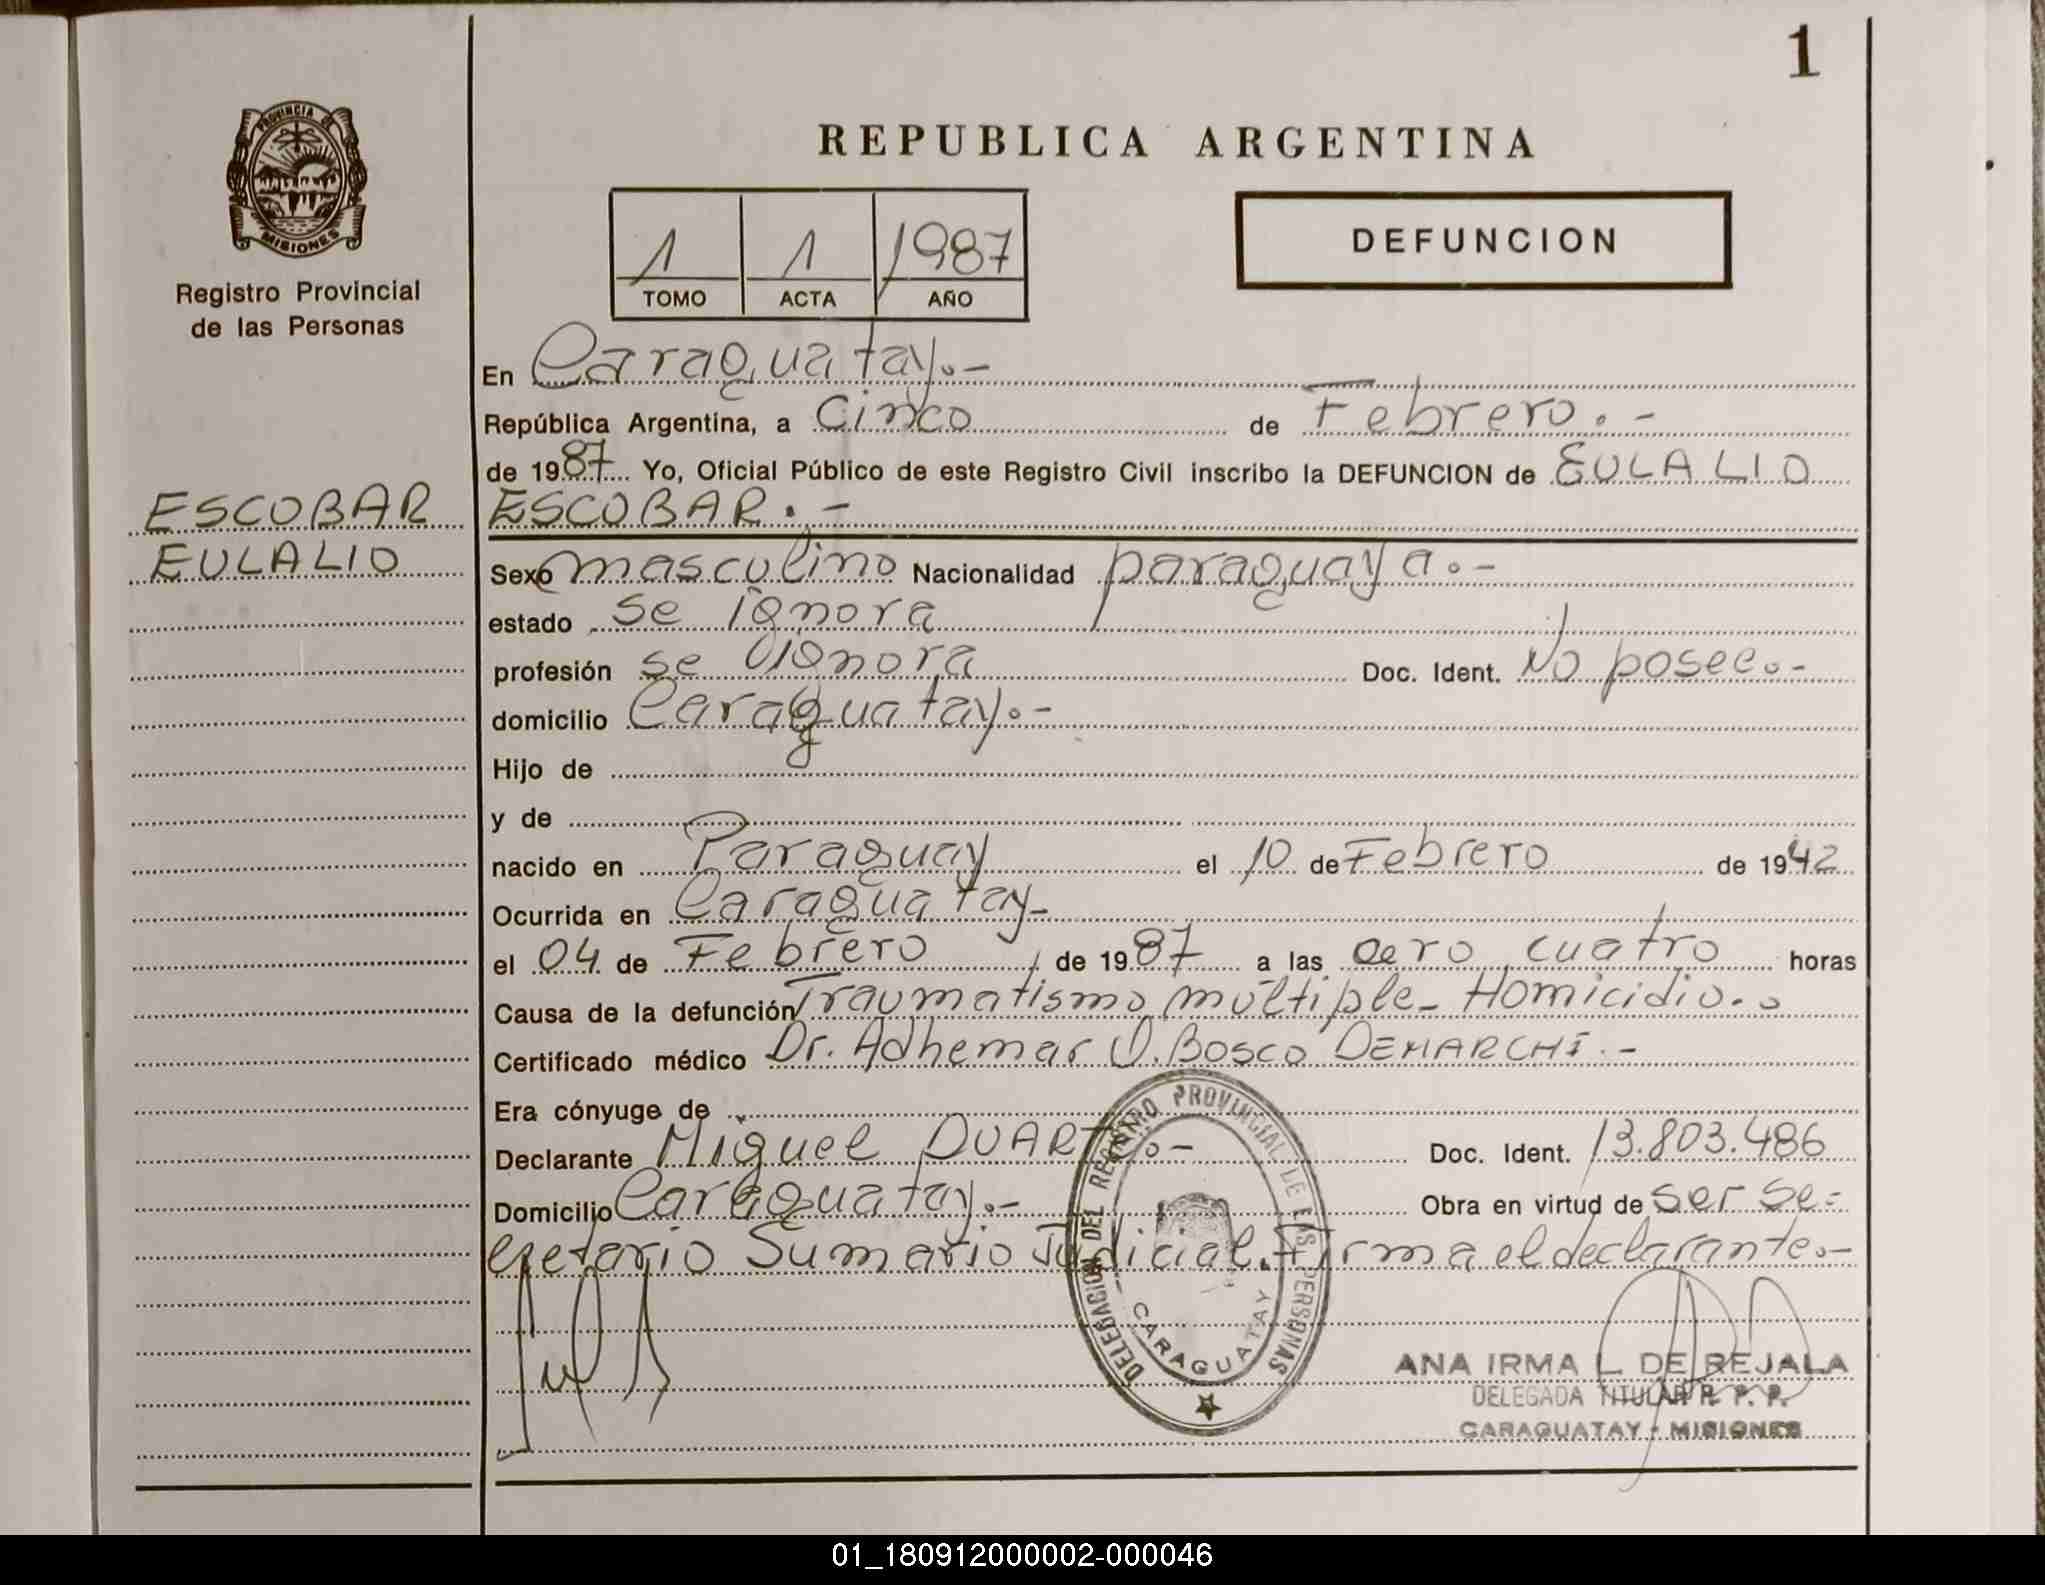 1
PROVINCIA DE
MISIONES
Registro Provincial
de las Personas
ESCOBAR
EULALIO
REPUBLICA ARGENTINA
1 1 1987
TOMO ACTA AÑO
DEFUNCION
En Caraguatay.-
República Argentina, a Cinco de Febrero.-
de 1987 Yo, Oficial Público de este Registro Civil inscribo la DEFUNCION de EULALIO
ESCOBAR.-
Sexo masculino Nacionalidad paraguaya.-
estado se ignora
profesión se ignora Doc. Ident. No posee.-
domicilio Caraguatay.-
Hijo de
y de
nacido en Paraguay el 10 de Febrero de 1942
Ocurrida en Caraguatay-
el 04 de Febrero de 1987 a las cero cuatro horas
Causa de la defunción Traumatismo múltiple- Homicidio.
Certificado médico Dr. Adhemar D. Bosco DEMARCHI.-
Era cónyuge de
Declarante Miguel DUARTE.- Doc. Ident. 13.803.486
Domicilio Caraguatay.- Obra en virtud de ser se=
cretario Sumario Judicial. Firma el declarante.-
DELEGACION DEL REGISTRO PROVINCIAL DE LAS PERSONAS
CARAGUATAY
ANA IRMA L. DE REJALA
DELEGADA TITULAR R. P. P.
CARAGUATAY - MISIONES
01_180912000002-000046